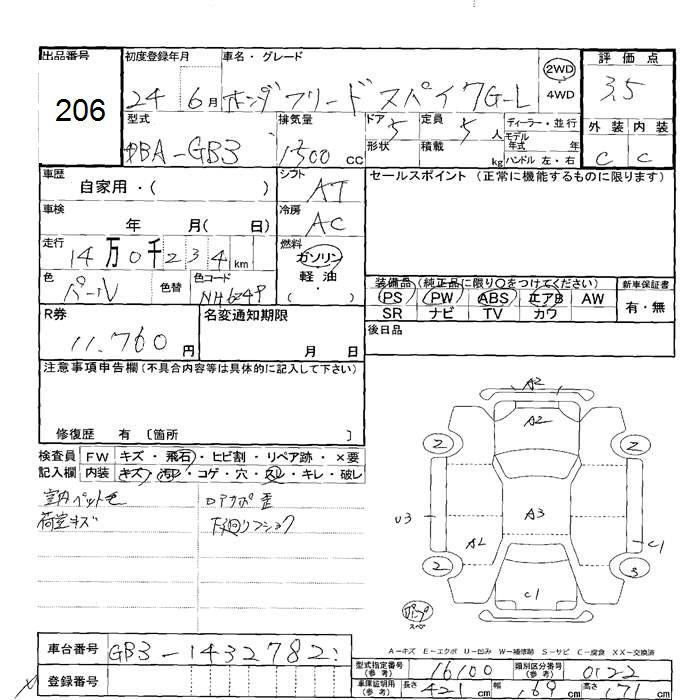 出品番号
206
初度登録年月
24 6月
車名・グレード
ホンダフリードスパイクG-L
2WD
4WD
評価点
3.5
型式
DBA-GB3
排気量
1500 cc
ドア 5
形状
定員 5 人
積載 kg
ディーラー・並行
モデル年式 年
ハンドル 左・右
外装 内装
C C
車歴
自家用・( )
シフト
AT
セールスポイント (正常に機能するものに限ります)
車検
年 月( 日)
冷房
AC
走行
14万0千234km
燃料
ガソリン
軽油
・( )
色
パール
色替
色コード
NH624P
装備品 (純正品に限り○をつけてください)
PS PW ABS エアB AW
SR ナビ TV カワ
新車保証書
有・無
R券
11,760円
名変通知期限
月 日
後日品
注意事項申告欄(不具合内容等は具体的に記入して下さい)
修復歴 有 〔箇所 〕
検査員
記入欄
FW キズ・飛石・ヒビ割・リペア跡・×要
内装 キズ・汚レ・コゲ・穴・スレ・キレ・破レ
室内ペット毛
荷室キズ
下廻りフショク
A2
A2
2 2
U3
A3
A2
C1
2 3
C1
A-キズ E-エクボ U-凹み W-補修跡 S-サビ C-腐食 XX-交換済
車台番号
GB3-1432782
登録番号
型式指定番号
(参考)
16100
類別区分番号
(参考)
0122
車庫証明用
(参考)
長さ 421 cm
幅 169 cm
高さ 171 cm